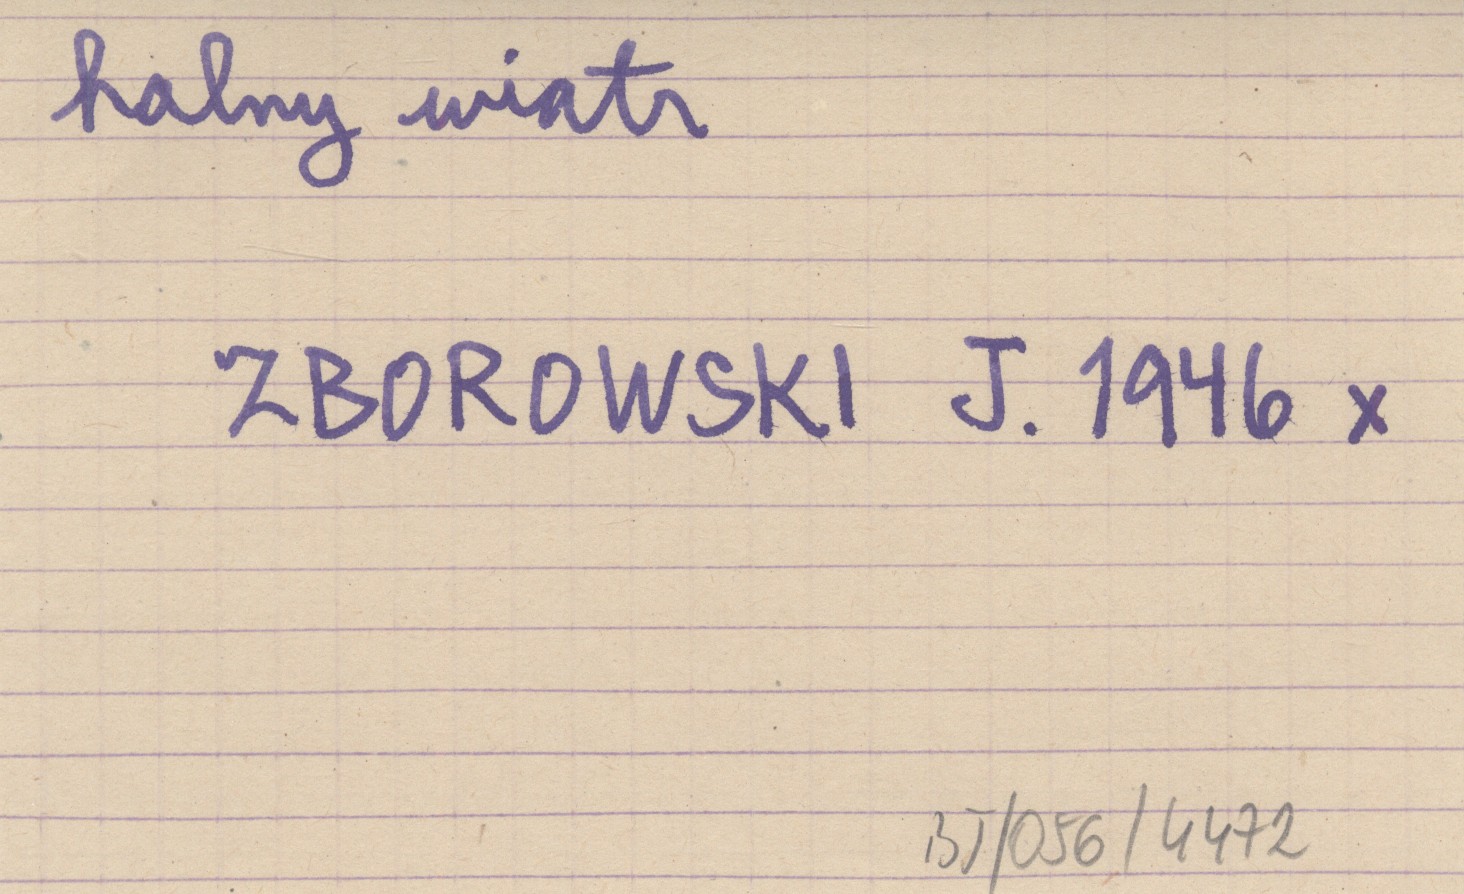 halny wiatr
ZBOROWSKI J. 1946 x
BJ/056/4472